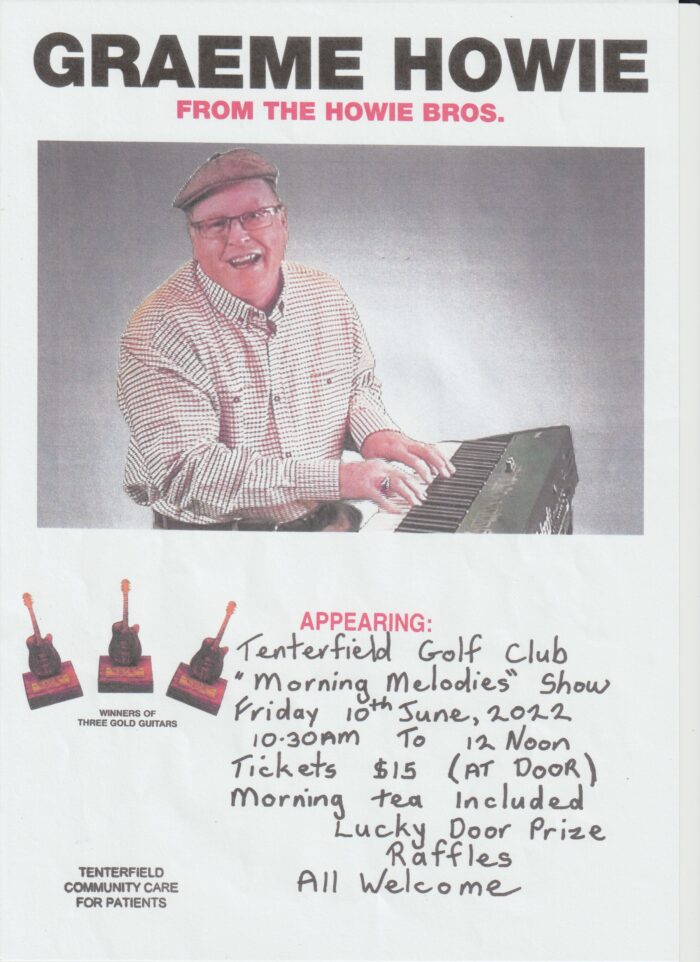 GRAEME HOWIE
FROM THE HOWIE BROS.
WINNERS OF
THREE GOLD GUITARS
APPEARING:
Tenterfield Golf Club
"Morning Melodies" Show
Friday 10th June, 2022
10.30AM To 12 Noon
Tickets $15 (AT DOOR)
Morning tea Included
Lucky Door Prize
Raffles
All Welcome
TENTERFIELD
COMMUNITY CARE
FOR PATIENTS